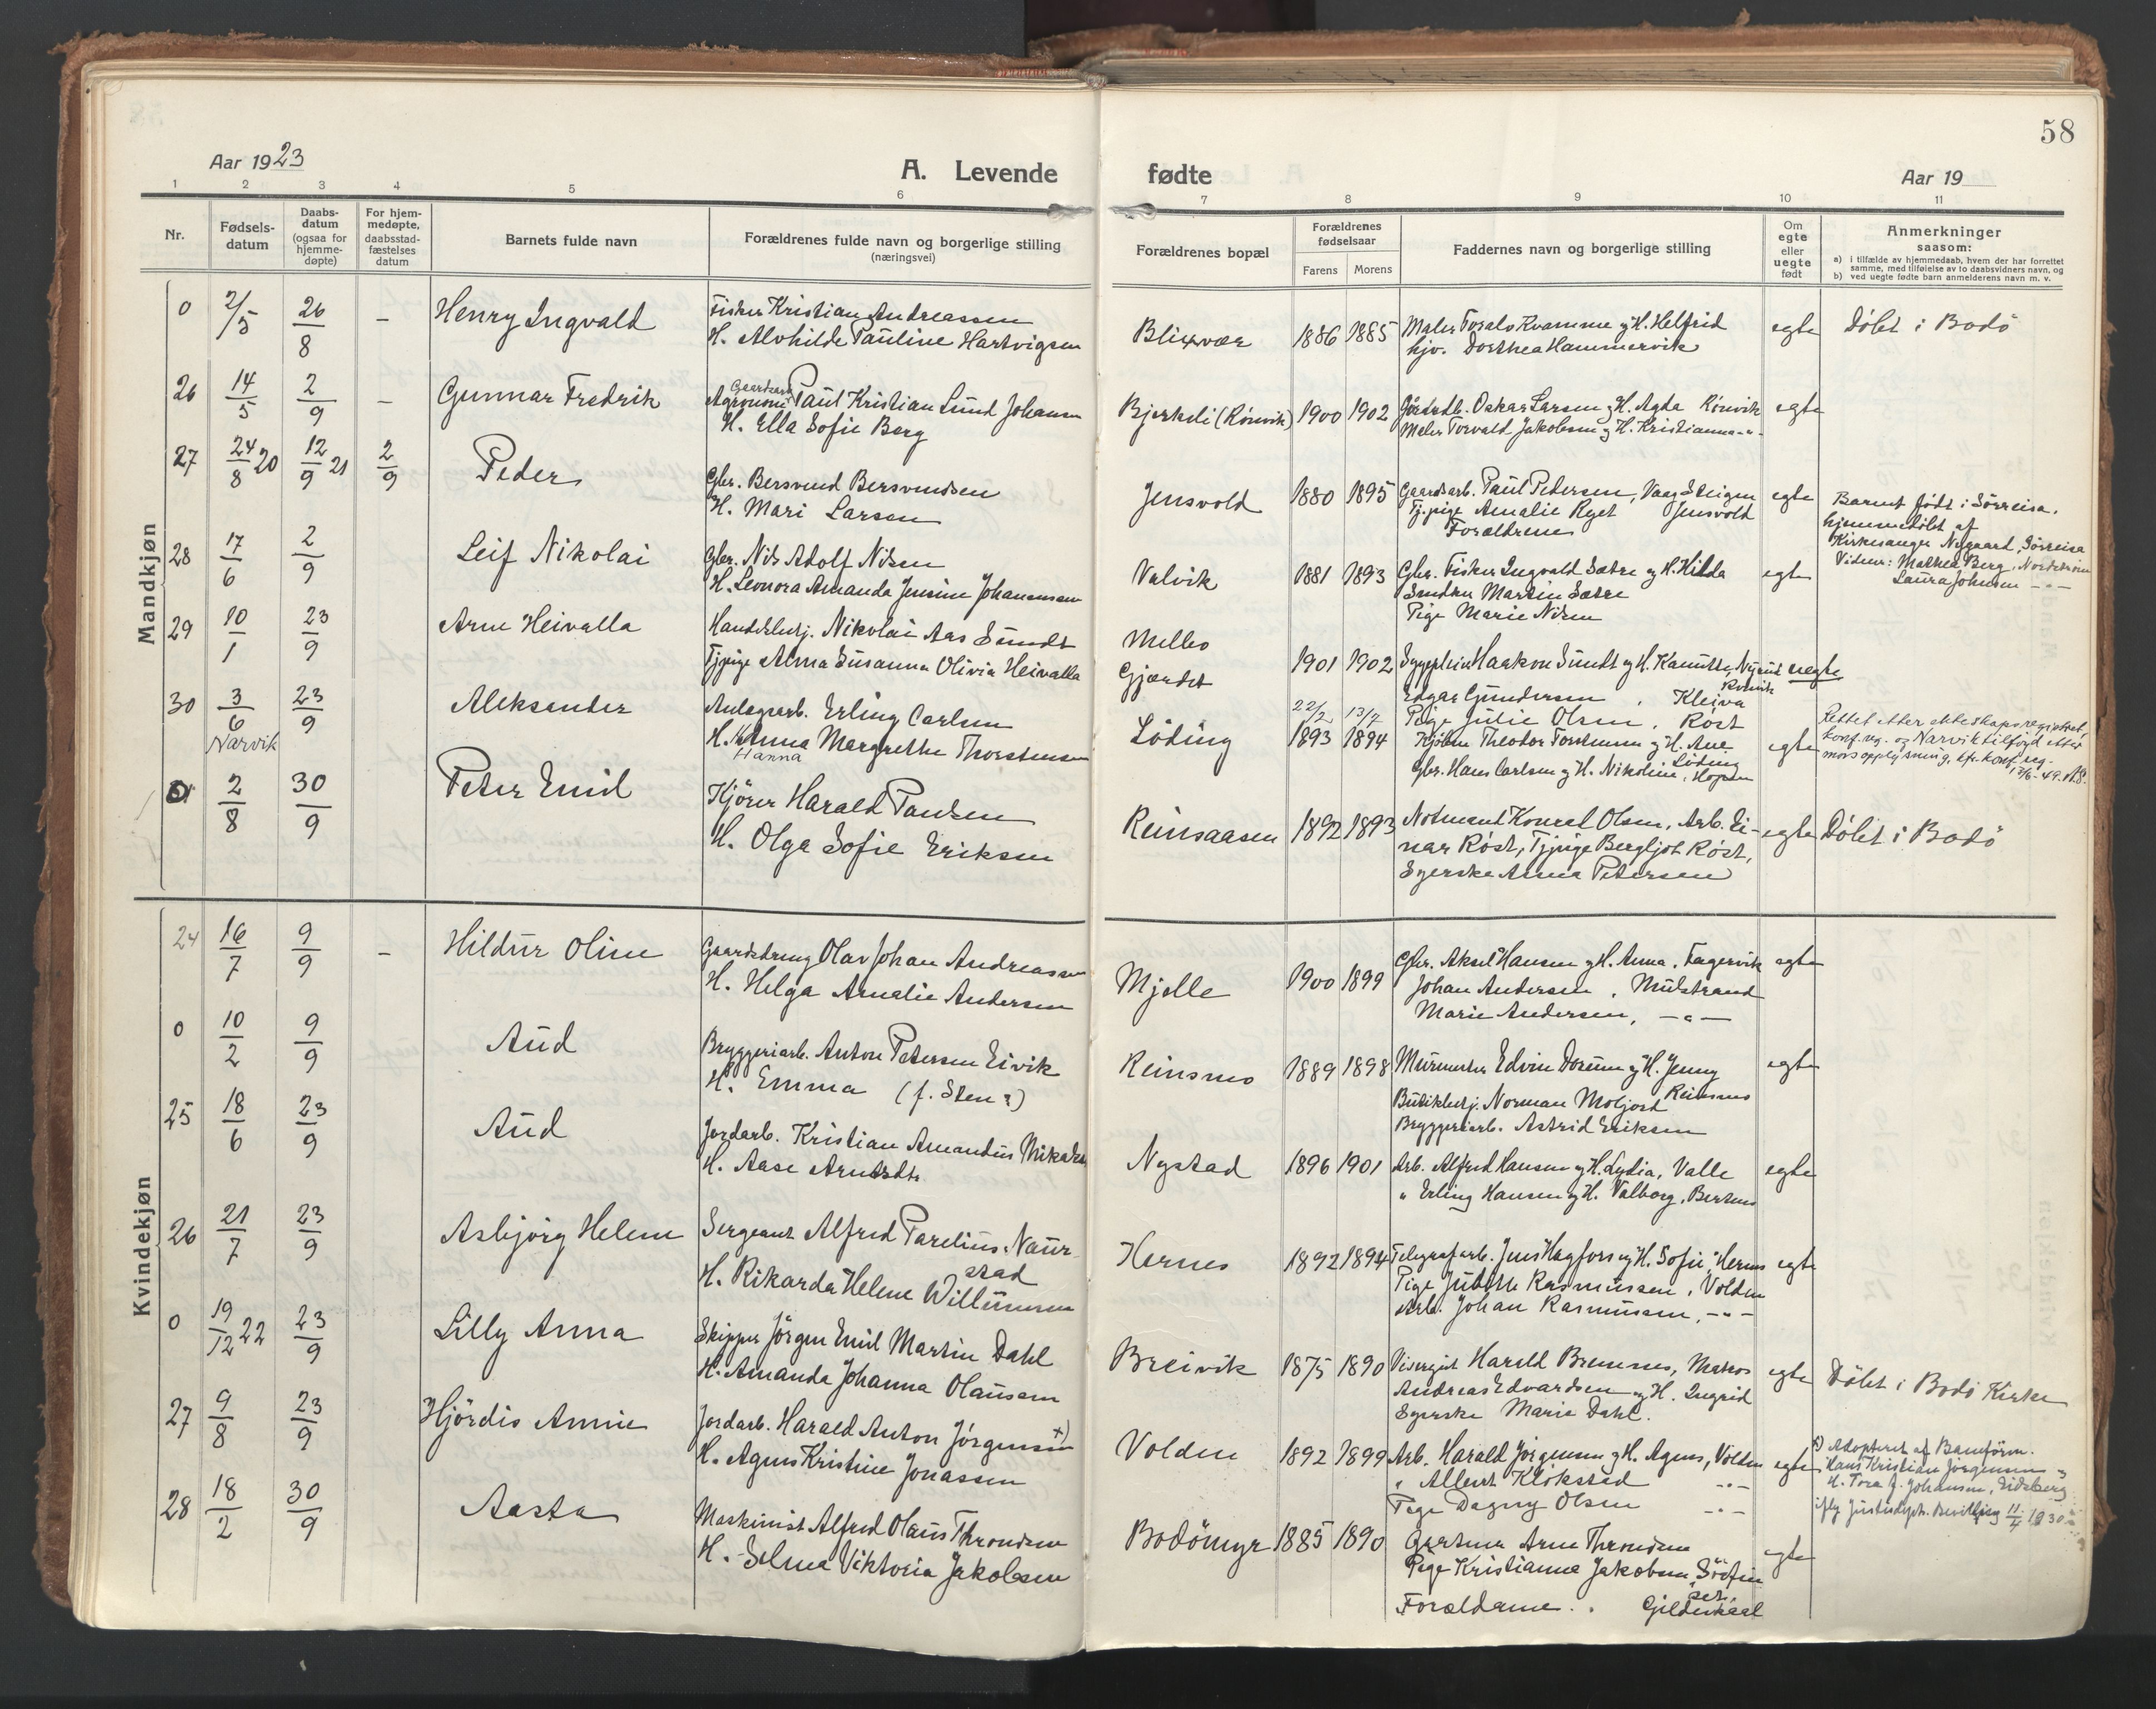 58
Aar 1923
A. Levende
fødte
Aar 19
1 2 3 4 5 6 7 8 9 10 11
Nr.
Fødsels-
datum
Daabs-
datum
(ogsaa for
hjemme-
døpte)
For hjem-
medøpte,
daabsstad-
fæstelses
datum
Barnets fulde navn
Forældrenes fulde navn og borgerlige stilling
(næringsvei)
Forældrenes bopæl
Forældrenes
fødselsaar
Farens Morens
Faddernes navn og borgerlige stilling
Om
egte
eller
uegte
født
Anmerkninger
saasom:
a) i tilfælde av hjemmedaab, hvem der har forrettet
samme, med tilføielse av to daabsvidners navn, og
b) ved uegte fødte barn anmelderens navn m. v.
Mandkjøn
0 2/5 26/8 - Henry Ingvald
Fisker Kristian Andreassen
H. Alvhilde Pauline Hartvigsen
Blixvær 1886 1885
Maler Kvamme og H. Helfrid
hjv. Dorthea Hammervik
egte
Døbt i Bodö
26 14/5 2/9 - Gunnar Fredrik
Gaardsarb.
Agronom Paul Kristian Lund Johansen
H. Ella Sofie Berg
Bjerkeli (Rønvik) 1900 1902
Oskar Larsen og H. Agda Rönvik
Maler Torvald Jakobsen og H. Kristianna -"-
egte
27 24/8 20 12/9 21 2/9 Peder
Gbr. Bersvend Bersvendsen
H. Mari Larsen
Jensvold 1880 1895
Gaardsarb. Paul Petersen, Vaag Steigen
Tj.pige Amalie Ryet Jensvold
Forældrene
egte
Barnet født i Sørreisa,
hjemmedöbt af
Kirkesanger Nygaard, Sørreisa
Vidner: Mathea Berg,
Laura Johnsen -"-
28 17/6 2/9 Leif Nikolai
Gbr. Nils Adolf Nilsen
H. Leonora Amanda Jensine Johannesen
Valvik 1881 1893
Gbr. Fisker Ingvald Sætre og H. Hilda
Martin Sætre
Pige Marie Nilsen
egte
29 10/1 23/9 Arne Heivalla
Handelsbetj. Nikolai Aas Sundt
Tjpige Alma Susanna Olivia Heivalla
Mellos
Gjærdet
1901 1902
Haakon Sundt og H. Kamilla,
Rønvik
Edgar Gundersen, Kleiva
Pige Julie Olsen, Röst
uegte
30 3/6 23/9 Aleksander
Narvik
Anlægsarb. Erling Carlsen
H. Anna Margrethe Thorstensen
Hanna
Löding 22/2 1893 13/7 1894
Theodor Torstensen og H. Ane
Löding
Gbr. Hans Carlsen og H. Nikoline, Hopen
egte
Rettet etter ekteskapsregistret,
konf.reg. og Narvik tilföyd etter
mors opplysning, kfr. konf.reg.
17/6-49.
31 2/8 30/9 Peter Emil
Kjörer Harald Paulsen
H. Olga Sofie Eriksen
Reinsaasen 1892 1893
Notmand Konrad Olsen, Arb. Ei-
nar Röst, Tjpige Bergljot Röst,
Syerske Anna Petersen
egte
Döbt i Bodö
Kvindekjøn
24 16/7 9/9 - Hildur Oline
Gaardsdreng Olav Johan Andreassen
H. Helga Amalie Andersen
Mjelle 1900 1899
Gbr. Aksel Hansen og H. Anna, Fagervik
Johan Andersen, Mulstrand
Marie Andersen, -"-
egte
0 10/2 9/9 Aud
Bryggeriarb. Anton Petersen Eivik
H. Emma (f. Sten?)
Reinsmo 1889 1898
Murmester Edvin Dorum og H. Jenny
Reinsmo
Butikbetj. Norman Moljord
Bryggeriarb. Astrid Eriksen
egte
25 18/6 23/9 Aud
Jordarb. Kristian Amandus Mikalsen
H. Aase Arntsdtr.
Nystad 1896 1901
Arb. Alfred Hansen og H. Lydia, Valle
" Erling Hansen og H. Valborg,
egte
26 21/7 23/9 Asbjørg Helene
Sergeant Alfred Parelius Naur-
stad
H. Rikarda Helene Willumsen
Hernes 1892 1894
Telegrafarb. Jens Hagfors og H. Sofie, Hernes
Pige Judith Rasmussen, Volden
Arb. Johan Rasmussen, -"-
egte
0 19/12 22 23/9 Lilly Anna
Skipper Jörgen Emil Martin Dahl
H. Amanda Johanna Olausen
Breivik 1875 1890
Visergut Harald Bremnes, Matros
Andreas Edvardsen og H. Ingrid
Syerske Marie Dahl.
egte
Döbt i Bodö Kirke
27 9/8 23/9 Hjördis Annie
Jordarb. Harald Anton Jörgensen +)
H. Agnes Kristine Jonassen
Volden 1892 1899
Arb. Harald Jörgensen og H. Agnes, Volden
" Albert Klokstad -"-
Pige Dagny Olsen -"-
egte
+) Adopteret af Baneform.
Hans Kristian Jörgensen og
H. Tora J. Johansen, Eidsberg
ifly Justisdept. Bevilling 11/4 1930
28 18/2 30/9 Aasta
Maskinist Alfred Olaus Throndsen
H. Selma Viktoria Jakobsen
Bodömyr 1885 1890
Gartner Arne Throndsen
Pige Kristianne Jakobsen,
Forældrene. Gildeskaal
egte